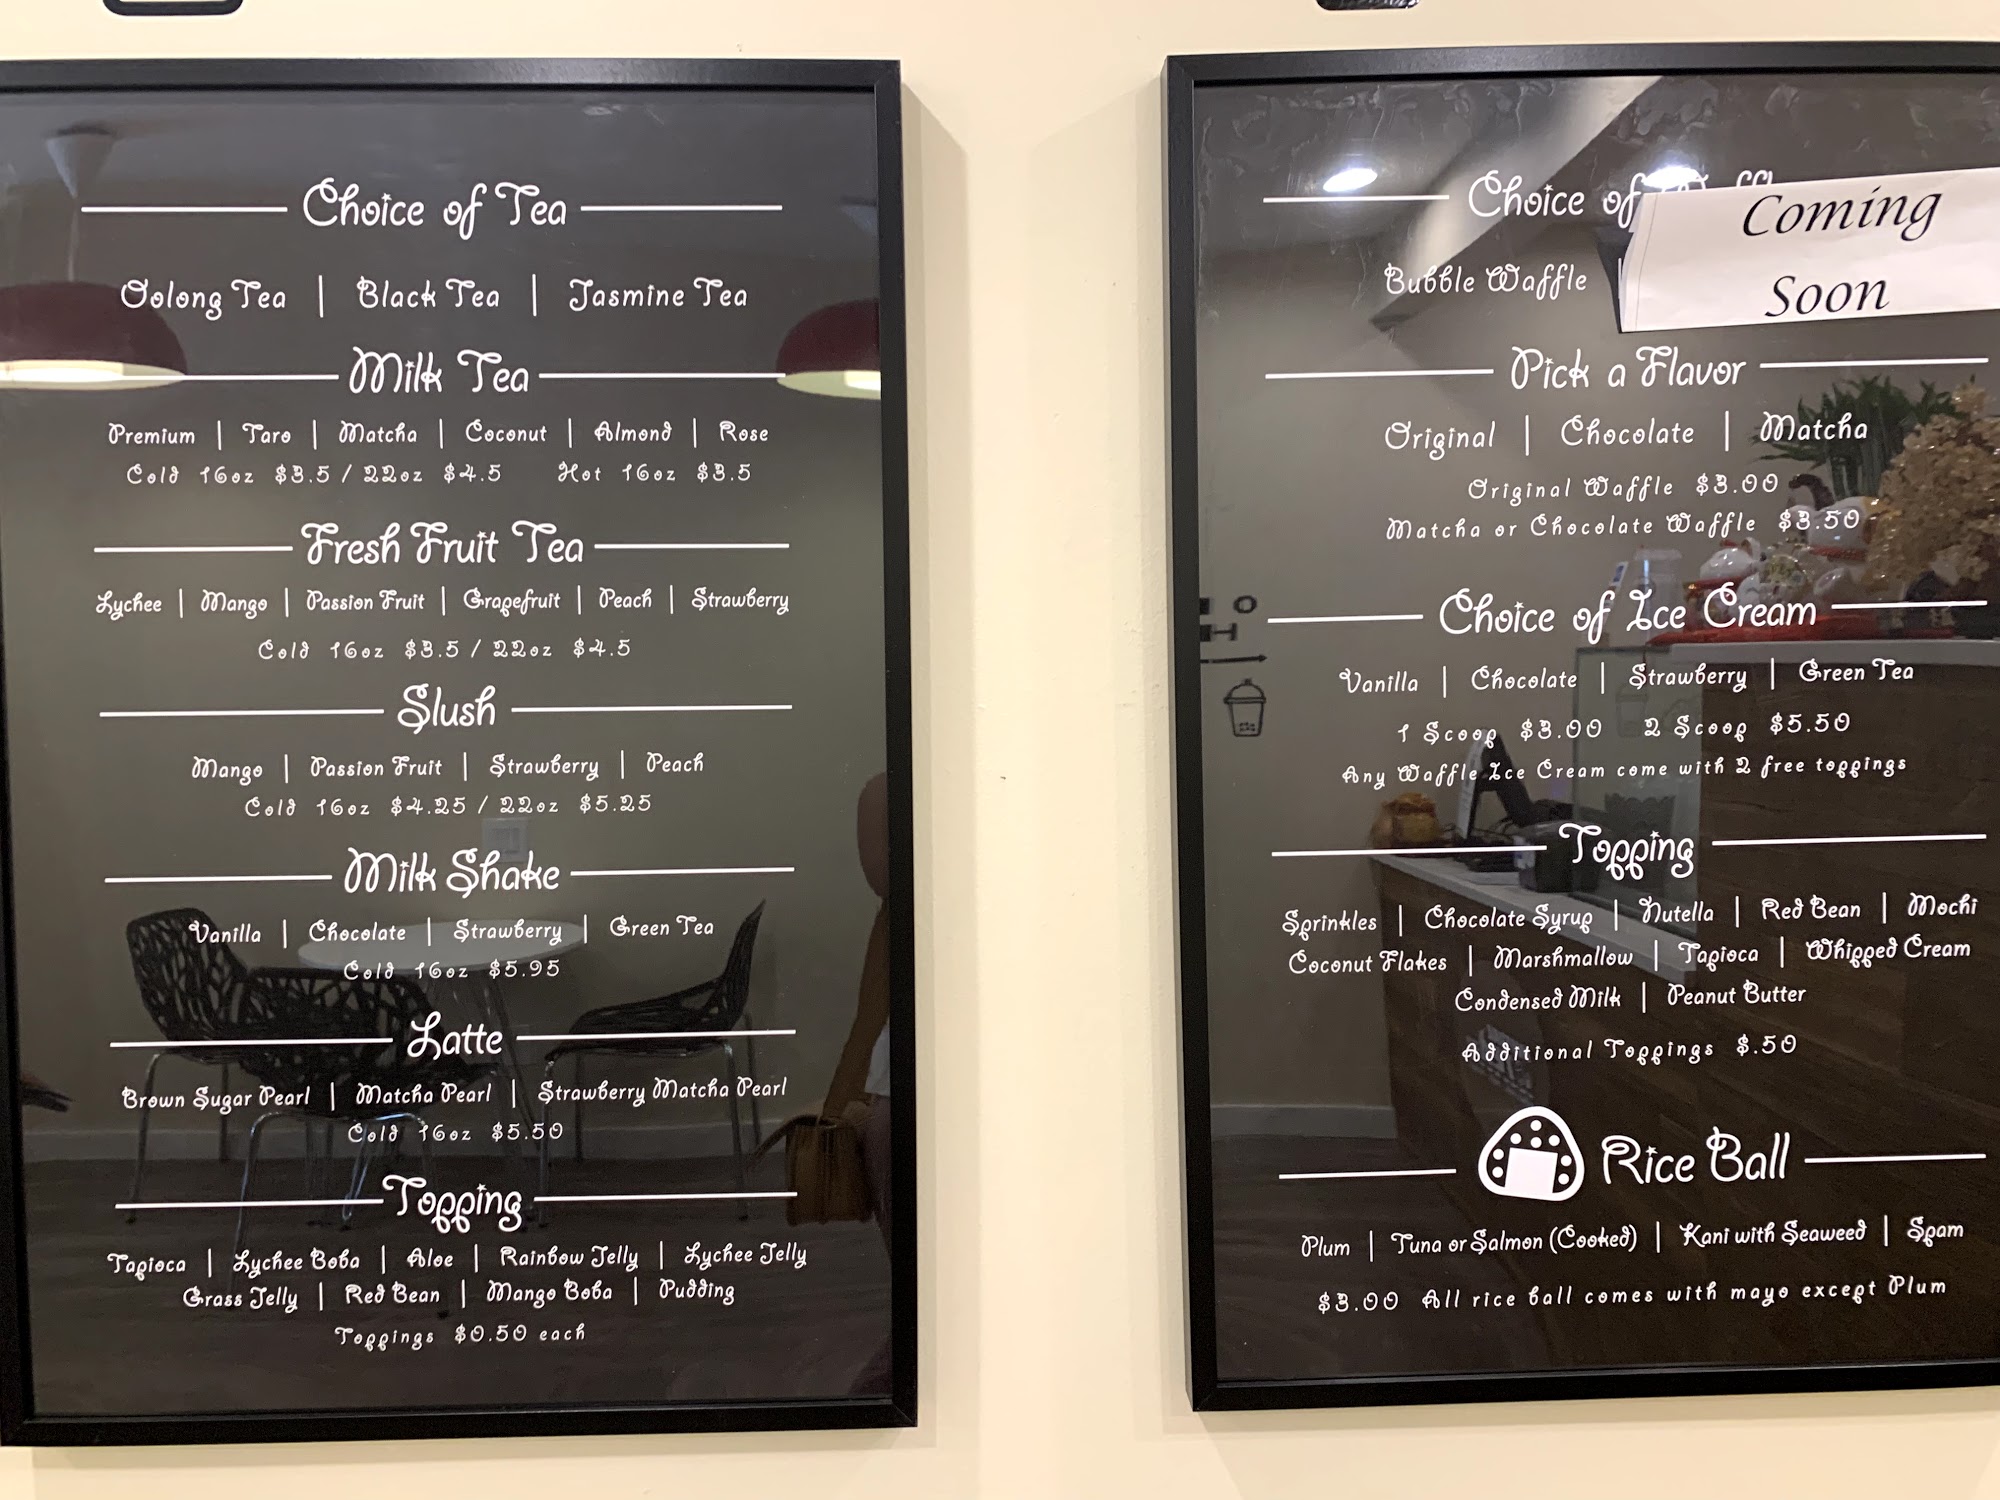 Choice of Tea
Oolong Tea | Black Tea | Jasmine Tea
Milk Tea
Premium | Taro | Matcha | Coconut | Almond | Rose
Cold 16oz $3.5 / 22oz $4.5 Hot 16oz $3.5
Fresh Fruit Tea
Lychee | Mango | Passion Fruit | Grapefruit | Peach | Strawberry
Cold 16oz $3.5 / 22oz $4.5
Slush
Mango | Passion Fruit | Strawberry | Peach
Cold 16oz $4.25 / 22oz $5.25
Milk Shake
Vanilla | Chocolate | Strawberry | Green Tea
Cold 16oz $5.95
Latte
Brown Sugar Pearl | Matcha Pearl | Strawberry Matcha Pearl
Cold 16oz $5.50
Topping
Tapioca | Lychee Boba | Aloe | Rainbow Jelly | Lychee Jelly
Grass Jelly | Red Bean | Mango Boba | Pudding
Toppings $0.50 each
Choice of
Coming
Soon
Bubble Waffle
Pick a Flavor
Original | Chocolate | Matcha
Original Waffle $3.00
Matcha or Chocolate Waffle $3.50
Choice of Ice Cream
Vanilla | Chocolate | Strawberry | Green Tea
1 Scoop $3.00 2 Scoop $5.50
Any Waffle Ice Cream come with 2 free toppings
Topping
Sprinkles | Chocolate Syrup | Nutella | Red Bean | Mochi
Coconut Flakes | Marshmallow | Tapioca | Whipped Cream
Condensed Milk | Peanut Butter
Additional Toppings $.50
Rice Ball
Plum | Tuna or Salmon (Cooked) | Kani with Seaweed | Spam
$3.00 All rice ball comes with mayo except Plum